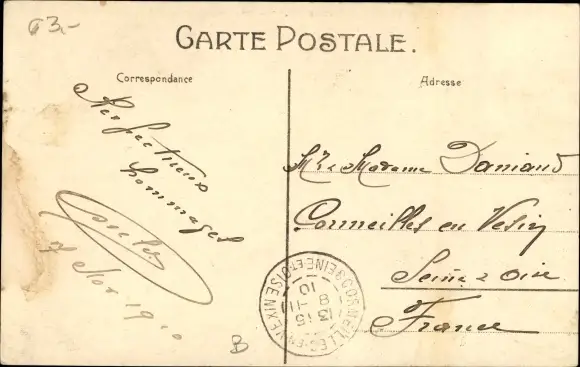 63,-
CARTE POSTALE.
Correspondance
Adresse
Respectueux
hommages
7 Nov 1910
Mr & Madame Daniaud
Cormeilles en Vexin
Seine & Oise
France
CORMEILLES-EN-VEXIN SEINE-ET-OISE
13 15
8 -11
10
B